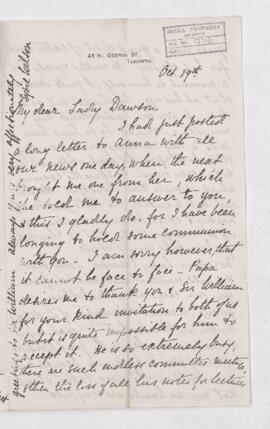 McGILL UNIVERSITY
ARCHIVES
ACC. NO.
REF.
45 St. George St.
Toronto.
Oct. 19th
My dear Lady Dawson
I had just posted
a long letter to Anna with all
our news one day, when the next
brought me one from her, which
she told me to answer to you,
& this I gladly do, for I have been
longing to hold some communion
with you - I am sorry however, that
it cannot be face to face - Papa
desires me to thank you & Sir William
for your kind invitation to both of us
but it is quite impossible for him to
accept it. He is so extremely busy,
there are such endless committee meetings,
then the loss of all his notes for lectures
greetings to Sir William always yrs very affectionately
Sybil Wilson